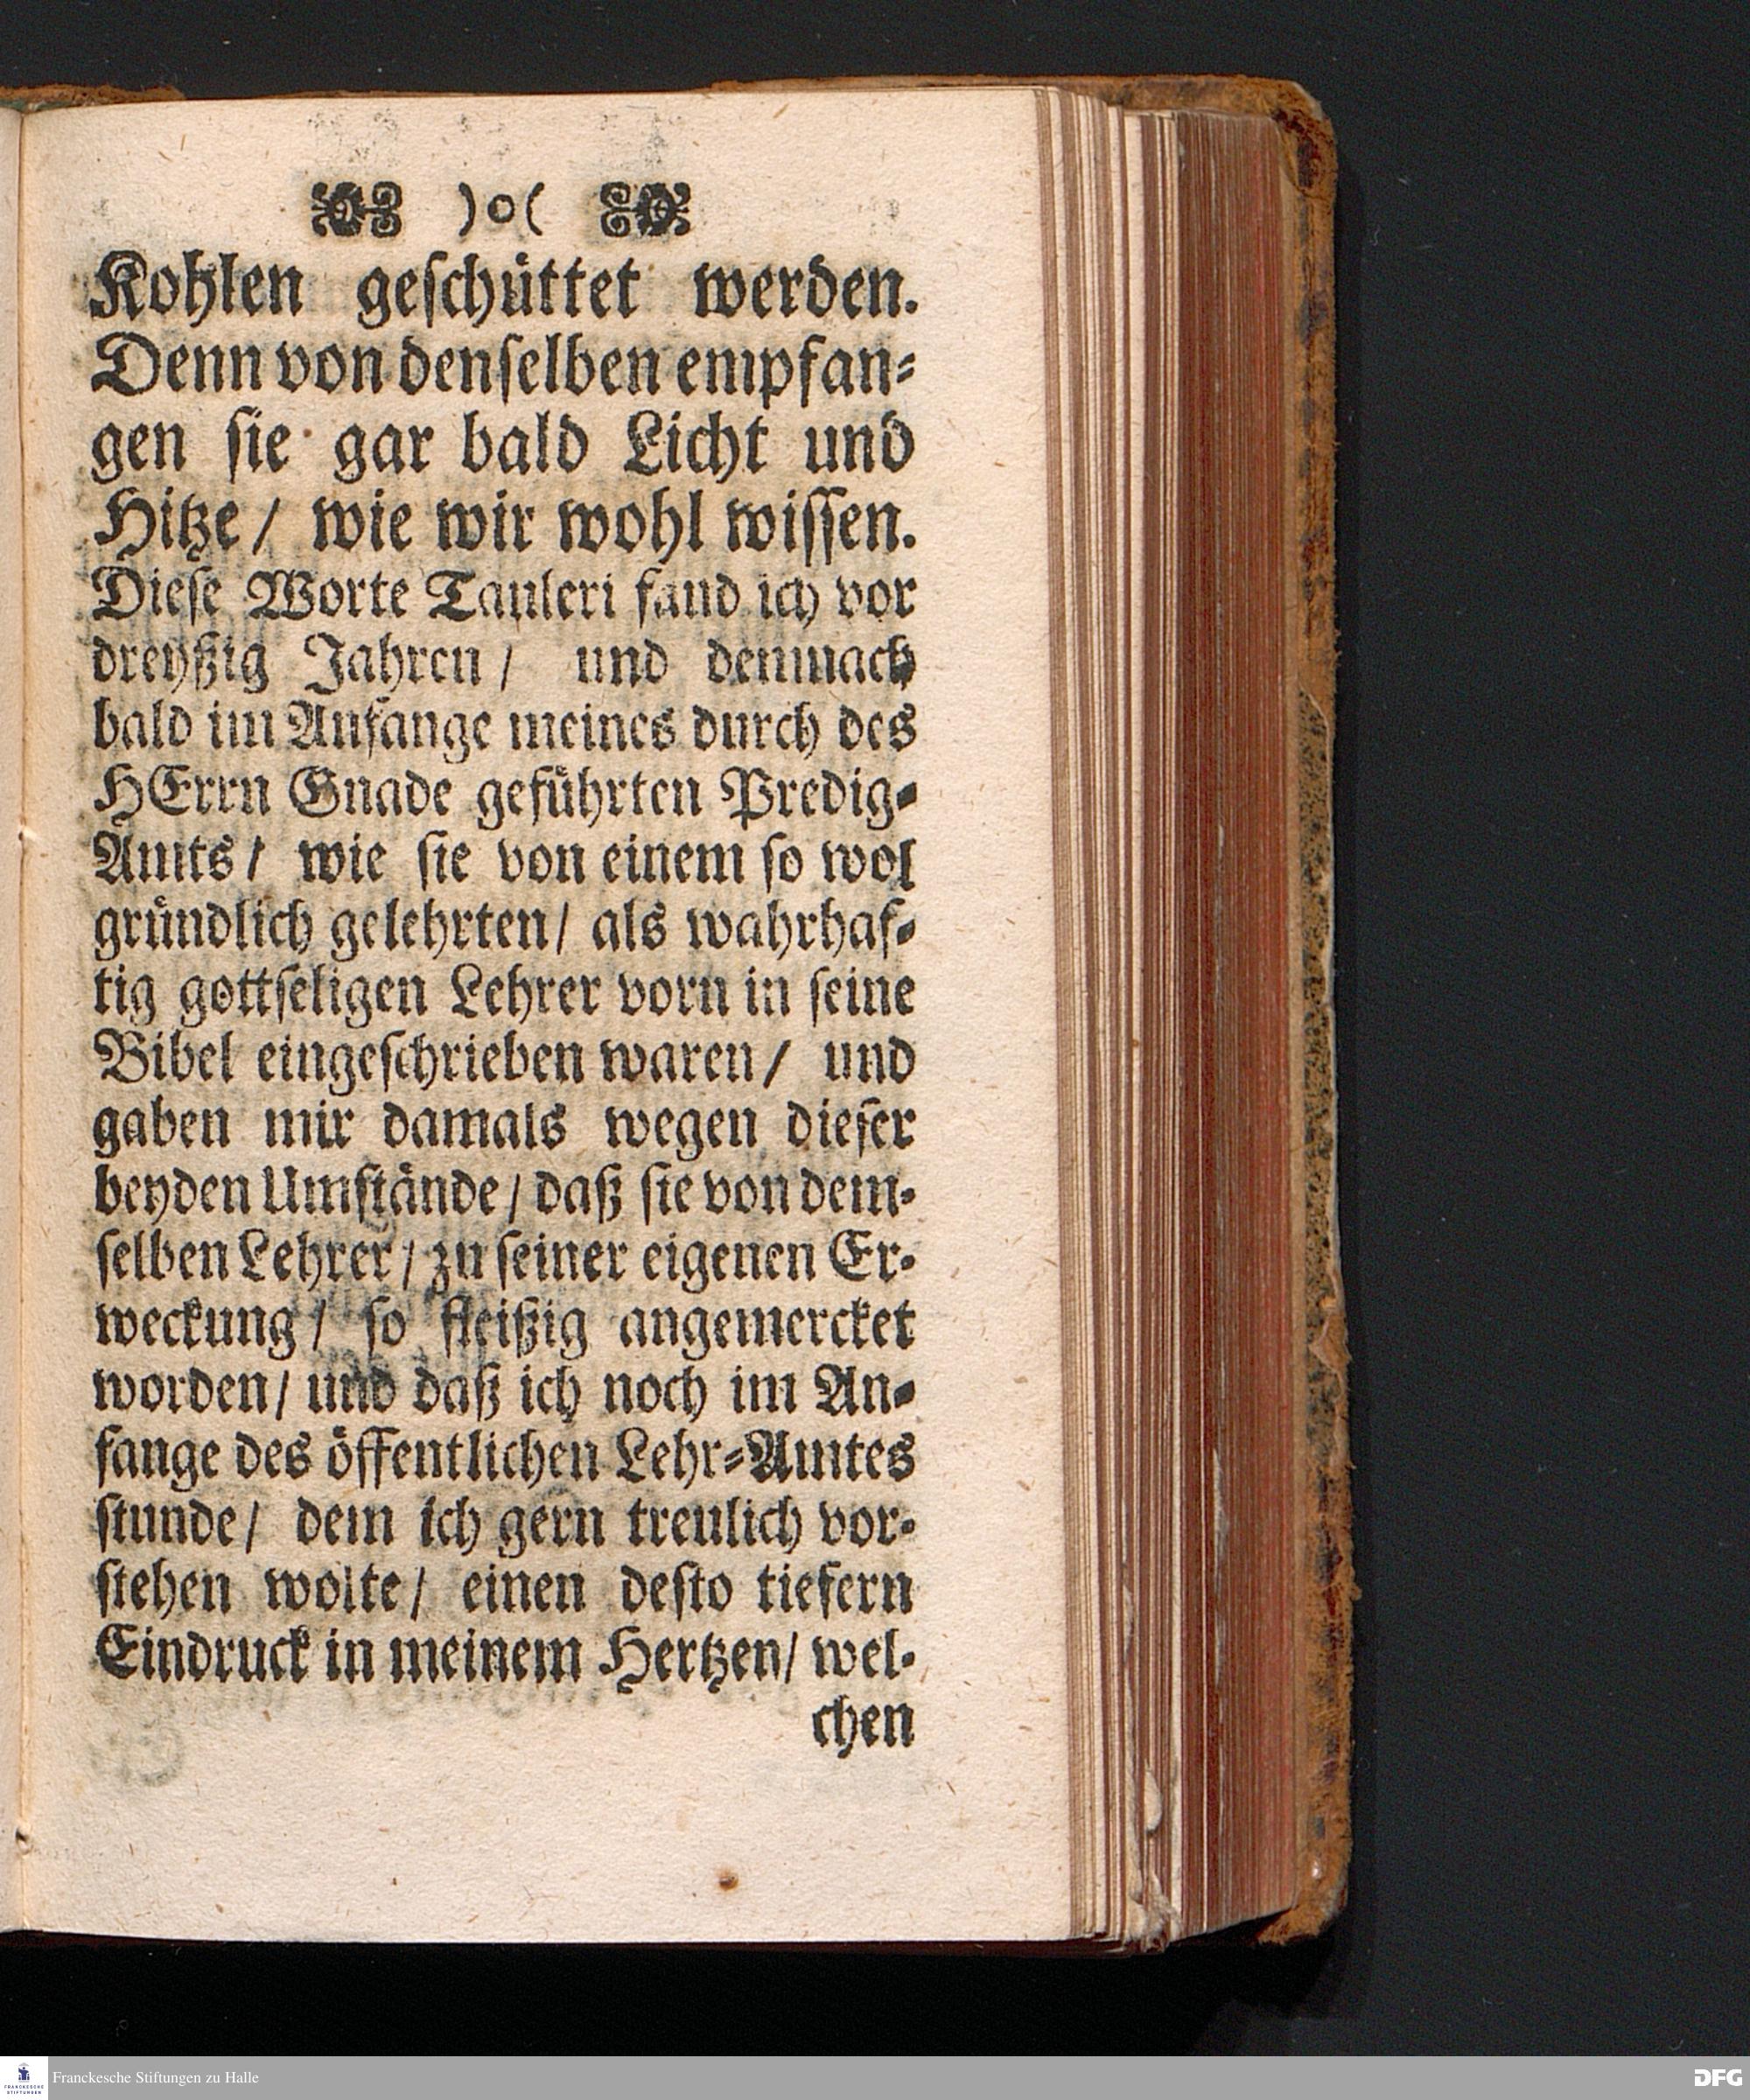 )o(
Kohlen geschüttet werden.
Denn von denselben empfan-
gen sie gar bald Licht und
Hitze/ wie wir wohl wissen.
Diese Worte Tauleri fand ich vor
dreyßig Jahren/ und demnach
bald im Anfange meines durch des
HErrn Gnade geführten Predig-
Amts/ wie sie von einem so wol
gründlich gelehrten/ als wahrhaf-
tig gottseligen Lehrer vorn in seine
Bibel eingeschrieben waren/ und
gaben mir damals wegen dieser
beyden Umstände/ daß sie von dem-
selben Lehrer/ zu seiner eigenen Er-
weckung/ so fleißig angemercket
worden/ und daß ich noch im An-
fange des öffentlichen Lehr-Amtes
stunde/ dem ich gern treulich vor-
stehen wolte/ einen desto tiefern
Eindruck in meinem Hertzen/ wel-
chen
FRANCKESCHE
STIFTUNGEN
Franckesche Stiftungen zu Halle
DFG